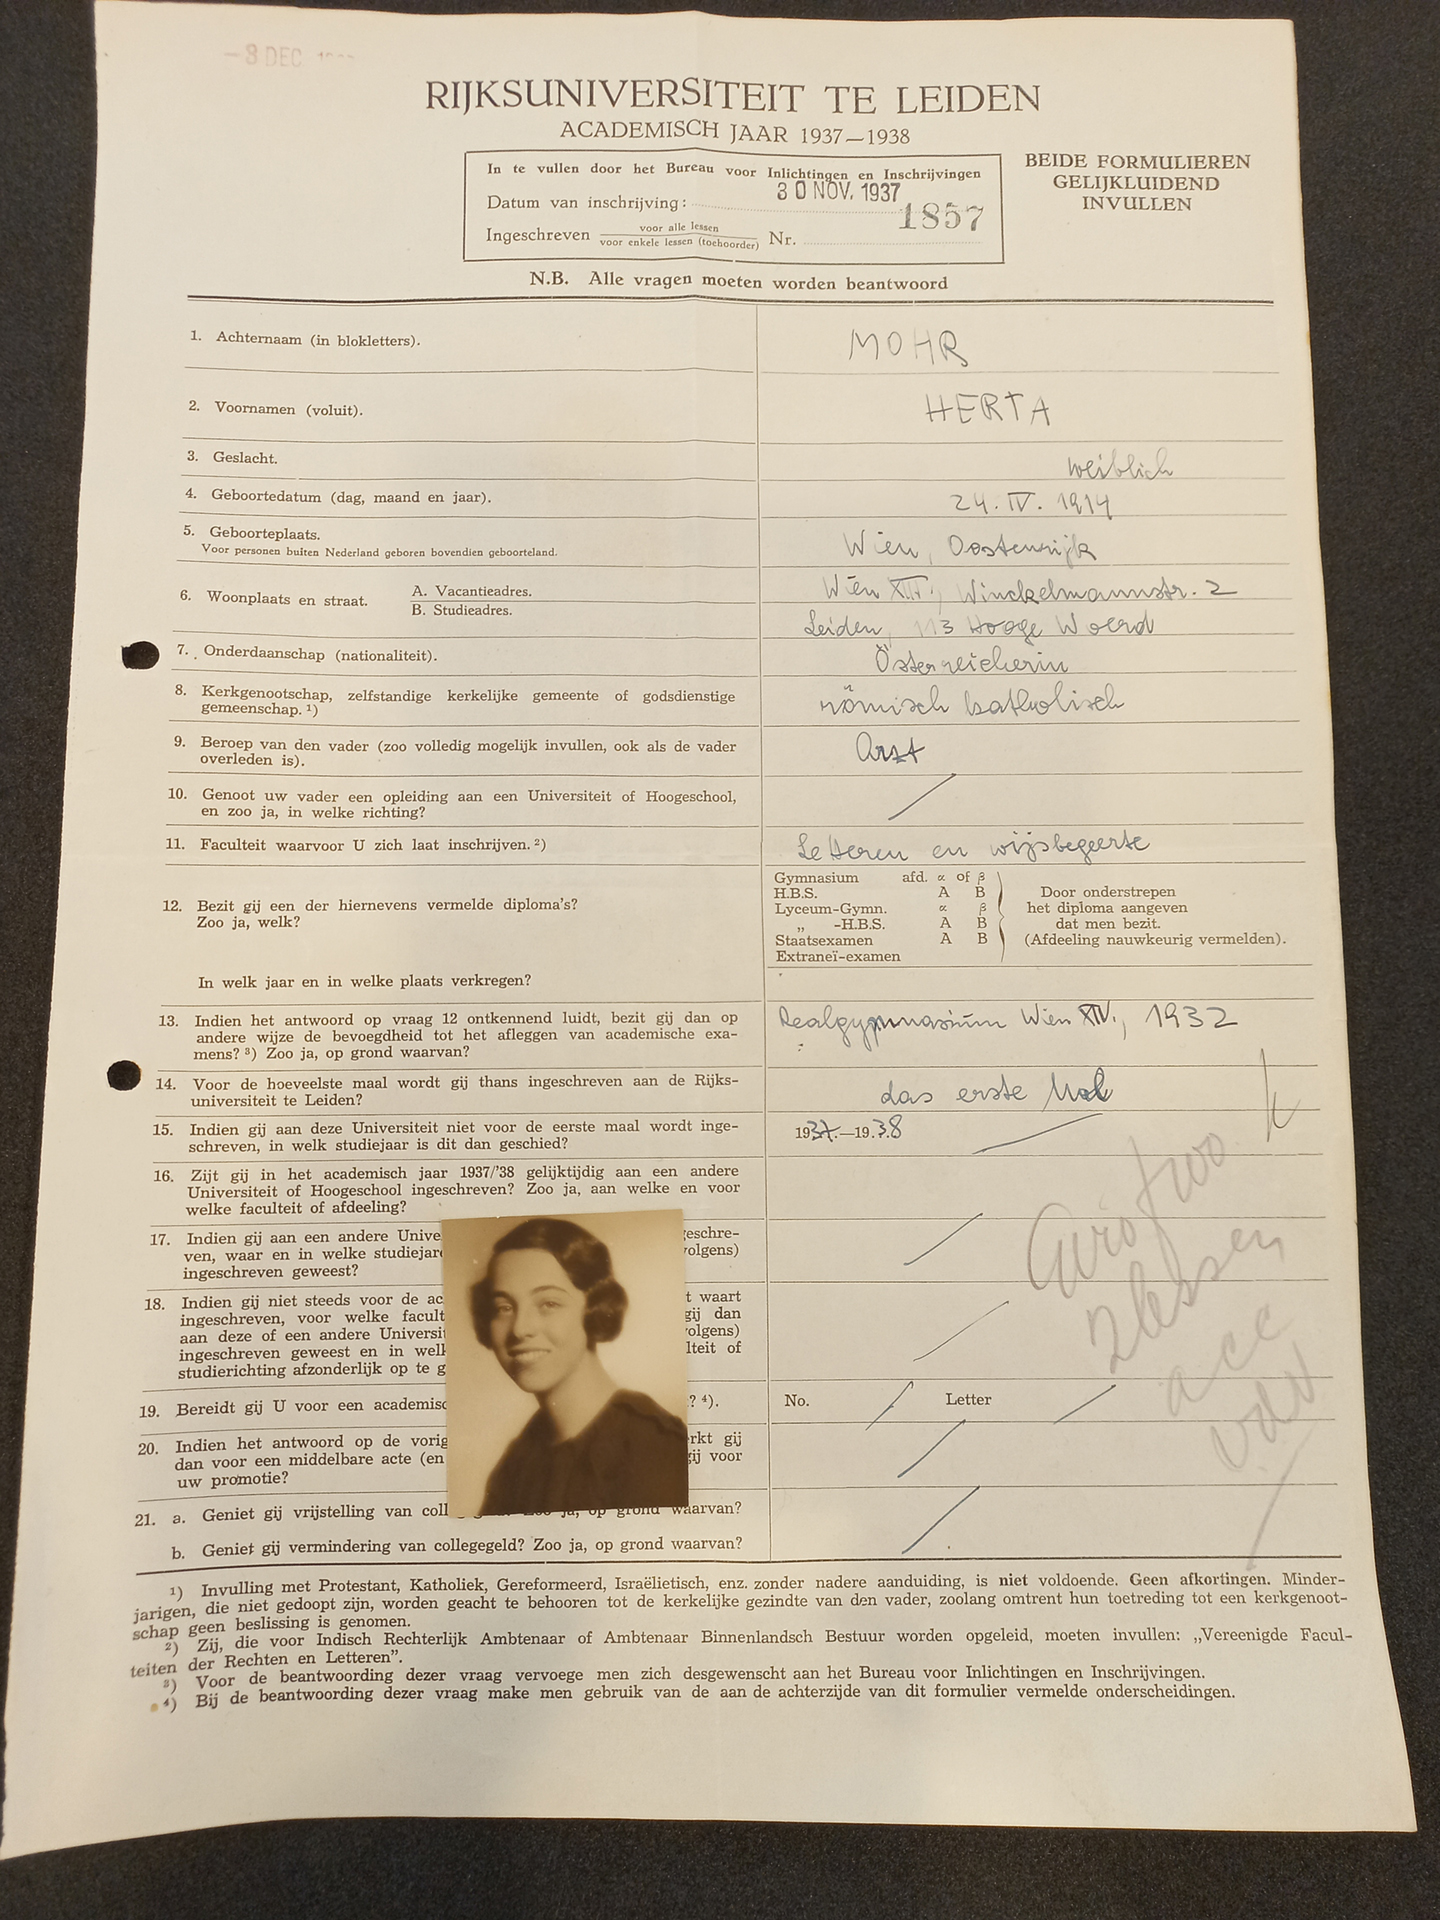 -3 DEC
RIJKSUNIVERSITEIT TE LEIDEN
ACADEMISCH JAAR 1937—1938
BEIDE FORMULIEREN
GELIJKLUIDEND
INVULLEN
In te vullen door het Bureau voor Inlichtingen en Inschrijvingen
Datum van inschrijving: 30 NOV. 1937
Ingeschreven voor alle lessen
voor enkele lessen (toehoorder) Nr. 1857
N.B. Alle vragen moeten worden beantwoord
1. Achternaam (in blokletters). MOHR
2. Voornamen (voluit). HERTA
3. Geslacht. weiblich
4. Geboortedatum (dag, maand en jaar). 24. IV. 1914
5. Geboorteplaats. Wien, Oostenrijk
Voor personen buiten Nederland geboren bovendien geboorteland.
6. Woonplaats en straat. A. Vacantieadres. Wien XIII., Winckelmannstr. 2
B. Studieadres. Leiden, 113 Hooge Woerd
7. Onderdaanschap (nationaliteit). Österreicherin
8. Kerkgenootschap, zelfstandige kerkelijke gemeente of godsdienstige
gemeenschap. ¹) römisch katholisch
9. Beroep van den vader (zoo volledig mogelijk invullen, ook als de vader
overleden is). Arzt
10. Genoot uw vader een opleiding aan een Universiteit of Hoogeschool,
en zoo ja, in welke richting?
11. Faculteit waarvoor U zich laat inschrijven. ²) Letteren en wijsbegeerte
12. Bezit gij een der hiernevens vermelde diploma's?
Zoo ja, welk?
Gymnasium afd. α of β
H.B.S. A B Door onderstrepen
Lyceum-Gymn. α β het diploma aangeven
„ -H.B.S. A B dat men bezit.
Staatsexamen A B (Afdeeling nauwkeurig vermelden).
Extraneï-examen
In welk jaar en in welke plaats verkregen?
13. Indien het antwoord op vraag 12 ontkennend luidt, bezit gij dan op
andere wijze de bevoegdheid tot het afleggen van academische exa-
mens? ³) Zoo ja, op grond waarvan?
Realgymnasium Wien XIV., 1932
14. Voor de hoeveelste maal wordt gij thans ingeschreven aan de Rijks-
universiteit te Leiden? das erste Mal
15. Indien gij aan deze Universiteit niet voor de eerste maal wordt inge-
schreven, in welk studiejaar is dit dan geschied? 1937.—19.38
16. Zijt gij in het academisch jaar 1937/'38 gelijktijdig aan een andere
Universiteit of Hoogeschool ingeschreven? Zoo ja, aan welke en voor
welke faculteit of afdeeling?
17. Indien gij aan een andere Unive eschre-
ven, waar en in welke studiejar olgens)
ingeschreven geweest?
18. Indien gij niet steeds voor de ac t waart
ingeschreven, voor welke facult gij dan
aan deze of een andere Universit olgens)
ingeschreven geweest en in well lteit of
studierichting afzonderlijk op te g
19. Bereidt gij U voor een academisc ? ⁴). No. Letter
20. Indien het antwoord op de vorig rkt gij
dan voor een middelbare acte (en gij voor
uw promotie?
21. a. Geniet gij vrijstelling van coll Zoo ja, op grond waarvan?
b. Geniet gij vermindering van collegegeld? Zoo ja, op grond waarvan?
¹) Invulling met Protestant, Katholiek, Gereformeerd, Israëlietisch, enz. zonder nadere aanduiding, is niet voldoende. Geen afkortingen. Minder-
jarigen, die niet gedoopt zijn, worden geacht te behooren tot de kerkelijke gezindte van den vader, zoolang omtrent hun toetreding tot een kerkgenoot-
schap geen beslissing is genomen.
²) Zij, die voor Indisch Rechterlijk Ambtenaar of Ambtenaar Binnenlandsch Bestuur worden opgeleid, moeten invullen: „Vereenigde Facul-
teiten der Rechten en Letteren”.
³) Voor de beantwoording dezer vraag vervoege men zich desgewenscht aan het Bureau voor Inlichtingen en Inschrijvingen.
⁴) Bij de beantwoording dezer vraag make men gebruik van de aan de achterzijde van dit formulier vermelde onderscheidingen.